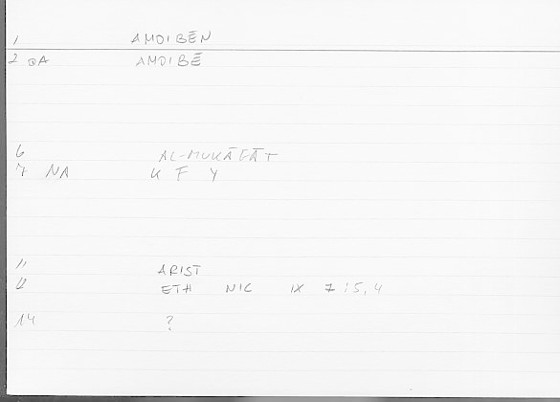 1 AMOIBĒN
2 aA AMOIBĒ
6 AL-MUKĀFĀT
7 NA K F Y
11 ARIST
12 ETH NIC IX 1:5,4
14 ?